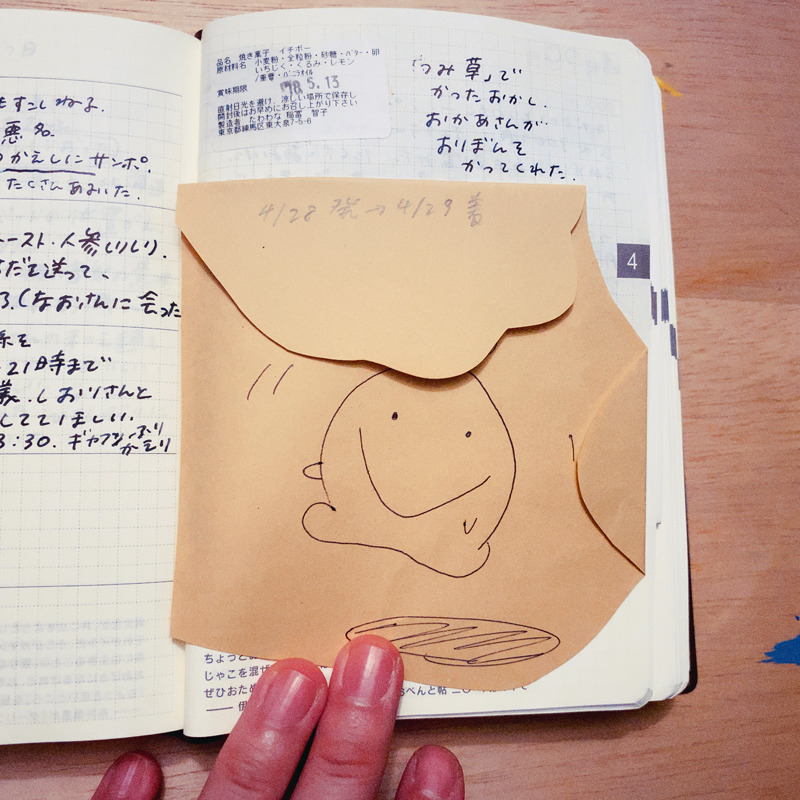 もすこしねる.
悪名.
かえしにサンポ.
たくさんあるいた.
ースト・人参しりしり.
だて送って、
3.(なおさんに会った
系を
21時まで
義.しおりさんと
してていほしい.
3:30. ギャフン.ふり
かえり
品名 焼き菓子 イチボー
原材料名 小麦粉・全粒粉・砂糖・バター・卵
いちじく・くるみ・レモン
/重曹・バニラオイル
賞味期限 '18.5.13
直射日光を避け、涼しい場所で保存し
開封後はお早めにお召し上がり下さい
製造者 たわわな 稲冨 智子
東京都練馬区東大泉7-5-6
「つみ草」で
かったおかし.
おかあさんが
おりぼんを
かってくれた.
4/28 発→4/29 着
4
ちょっと
じゃこを混ぜ
ぜひおため
おべんと帖